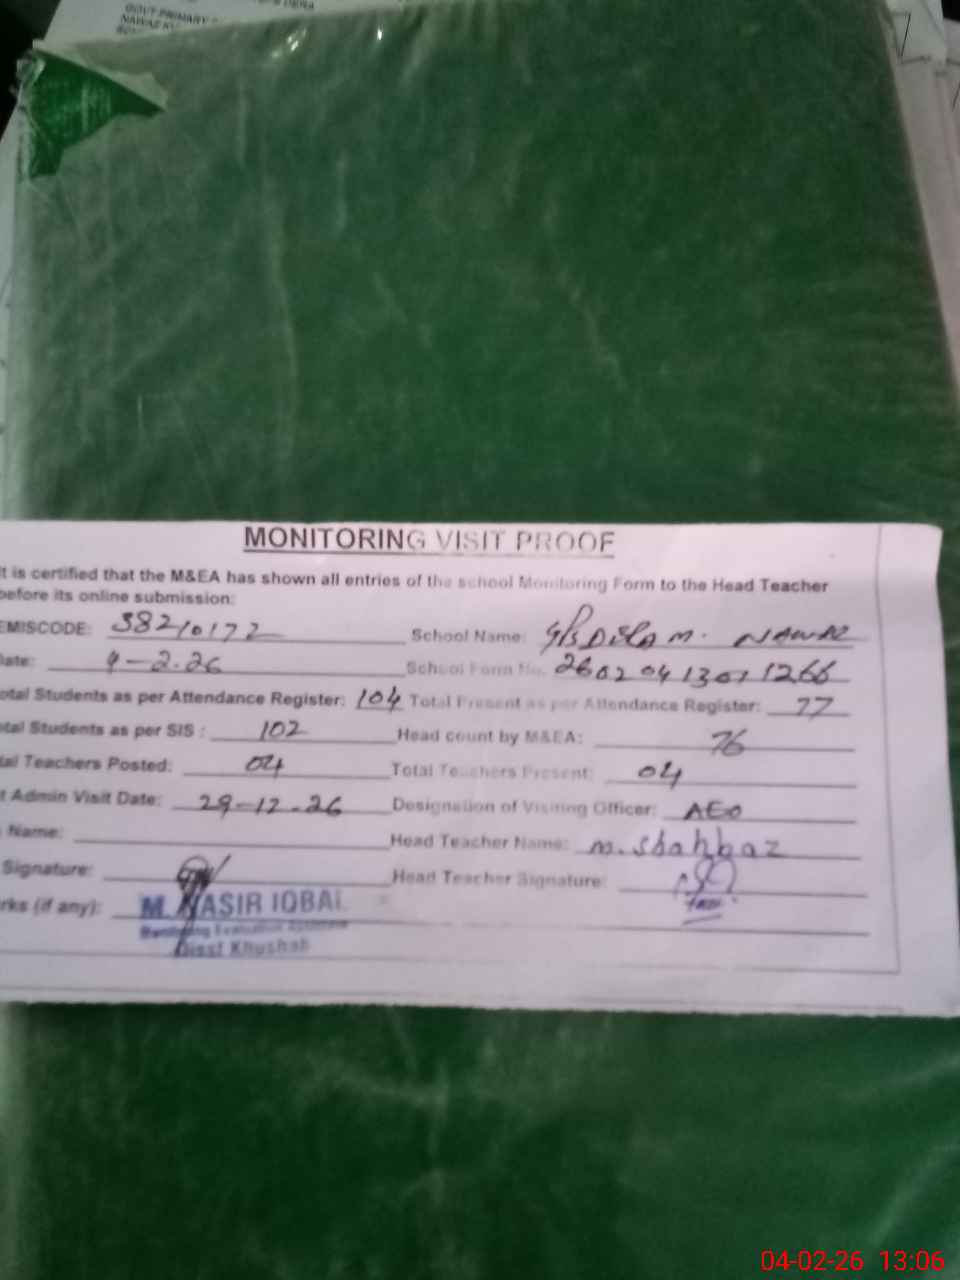 GOVT PRIMARY
NAWAZ
MONITORING VISIT PROOF
t is certified that the M&EA has shown all entries of the school Monitoring Form to the Head Teacher
before its online submission:
EMISCODE: 38210172 School Name: GPS DERA M. NAWAZ
ate: 4-2-26 School Form No. 26020413011266
otal Students as per Attendance Register: 104 Total Present as per Attendance Register: 77
otal Students as per SIS : 102 Head count by M&EA: 76
tal Teachers Posted: 04 Total Teachers Present: 04
t Admin Visit Date: 29-12-26 Designation of Visiting Officer: AEO
Name: Head Teacher Name: M. Shahbaz
Signature: Head Teacher Signature:
rks (if any): M. NASIR IQBAL
Monitoring Evaluation Assistant
Disst Khushab
04-02-26 13:06